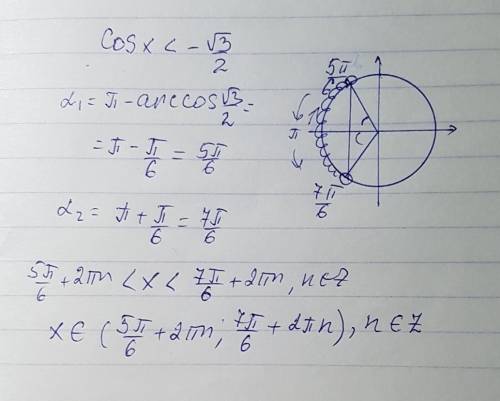 cos x < - √3/2
α₁ = π - arccos √3/2 =
= π - π/6 = 5π/6
α₂ = π + π/6 = 7π/6
5π/6 + 2πn < x < 7π/6 + 2πn, n ∈ Z
x ∈ (5π/6 + 2πn; 7π/6 + 2πn), n ∈ Z
5π/6
π
7π/6